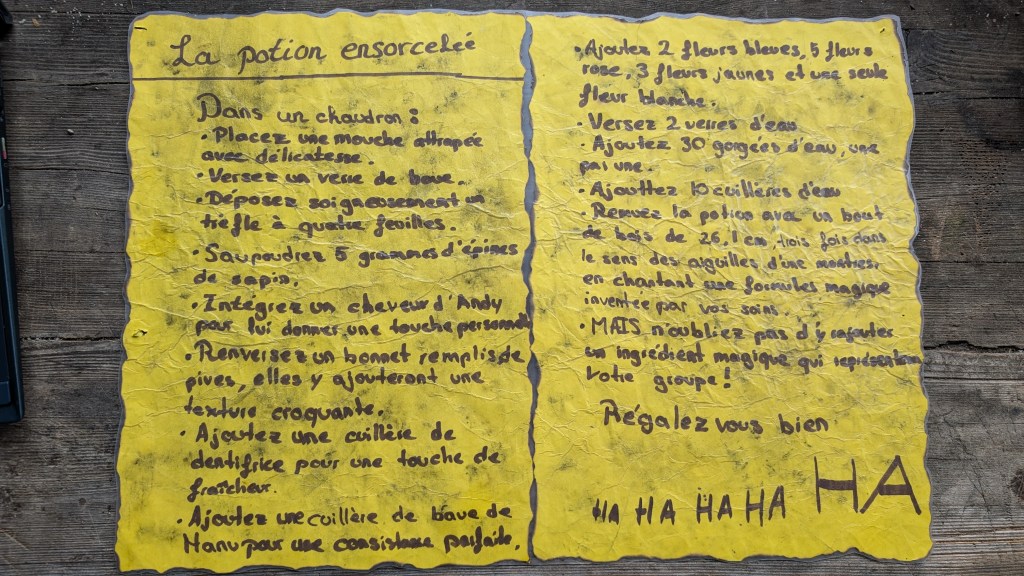 La potion ensorcelée
Dans un chaudron :
• Placez une mouche attrapée
avec délicatesse.
• Versez un verre de bave.
• Déposez soigneusement un
trèfle à quatre feuilles.
• Saupoudrez 5 grammes d'épines
de sapin.
• Intégrez un cheveux d'Andy
pour lui donner une touche personnel
• Renversez un bonnet remplis de
pives, elles y ajouteront une
texture croquante.
• Ajoutez une cuillère de
dentifrice pour une touche de
fraîcheur.
• Ajoutez une cuillère de bave de
Manu pour une consistance parfaite.
• Ajoutez 2 fleurs bleues, 5 fleurs
rose, 3 fleurs jaunes et une seule
fleur blanche.
• Versez 2 verres d'eau
• Ajoutez 30 gorgées d'eau, une
par une.
• Ajouttez 10 cuillères d'eau
• Remuez la potion avec un bout
de bois de 26,1 cm, trois fois dans
le sens des aiguilles d'une montres,
en chantant une formules magique
inventée par vos soins.
• MAIS n'oubliez pas d'y rajouter
un ingrédient magique qui représentera
votre groupe !
Régalez vous bien
HA HA HA HA HA